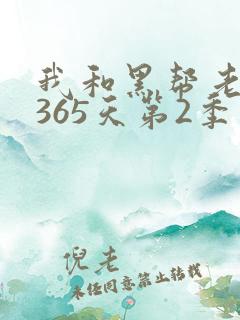 我和黑帮老
365天第2季
倪老
未经同意禁止转载